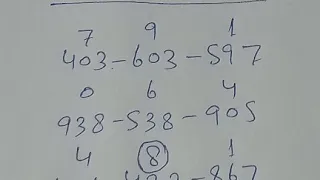 7 9 1
403-603-597
0 6 4
938-538-905
4 8 1
867